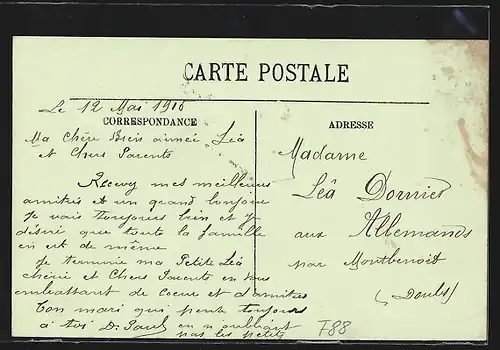 CARTE POSTALE
Le 12 Mai 1916
CORRESPONDANCE
ADRESSE
Ma Chère Bien aimée Léa
et Chers Parents
Recevez mes meilleures
amitiés et un grand bonjour
Je vais toujours bien et je
désire que toute la famille
en est de même
Je termine ma Petite Léa
chérie et Chers Parents en vous
embrassant de Coeur et d'amitiés
Ton mari qui pense toujours
à toi Paul en n'oubliant
pas les petits
Madame
Léa Dornier
aux Allemands
par Montbenoit
(Doubs)
F88